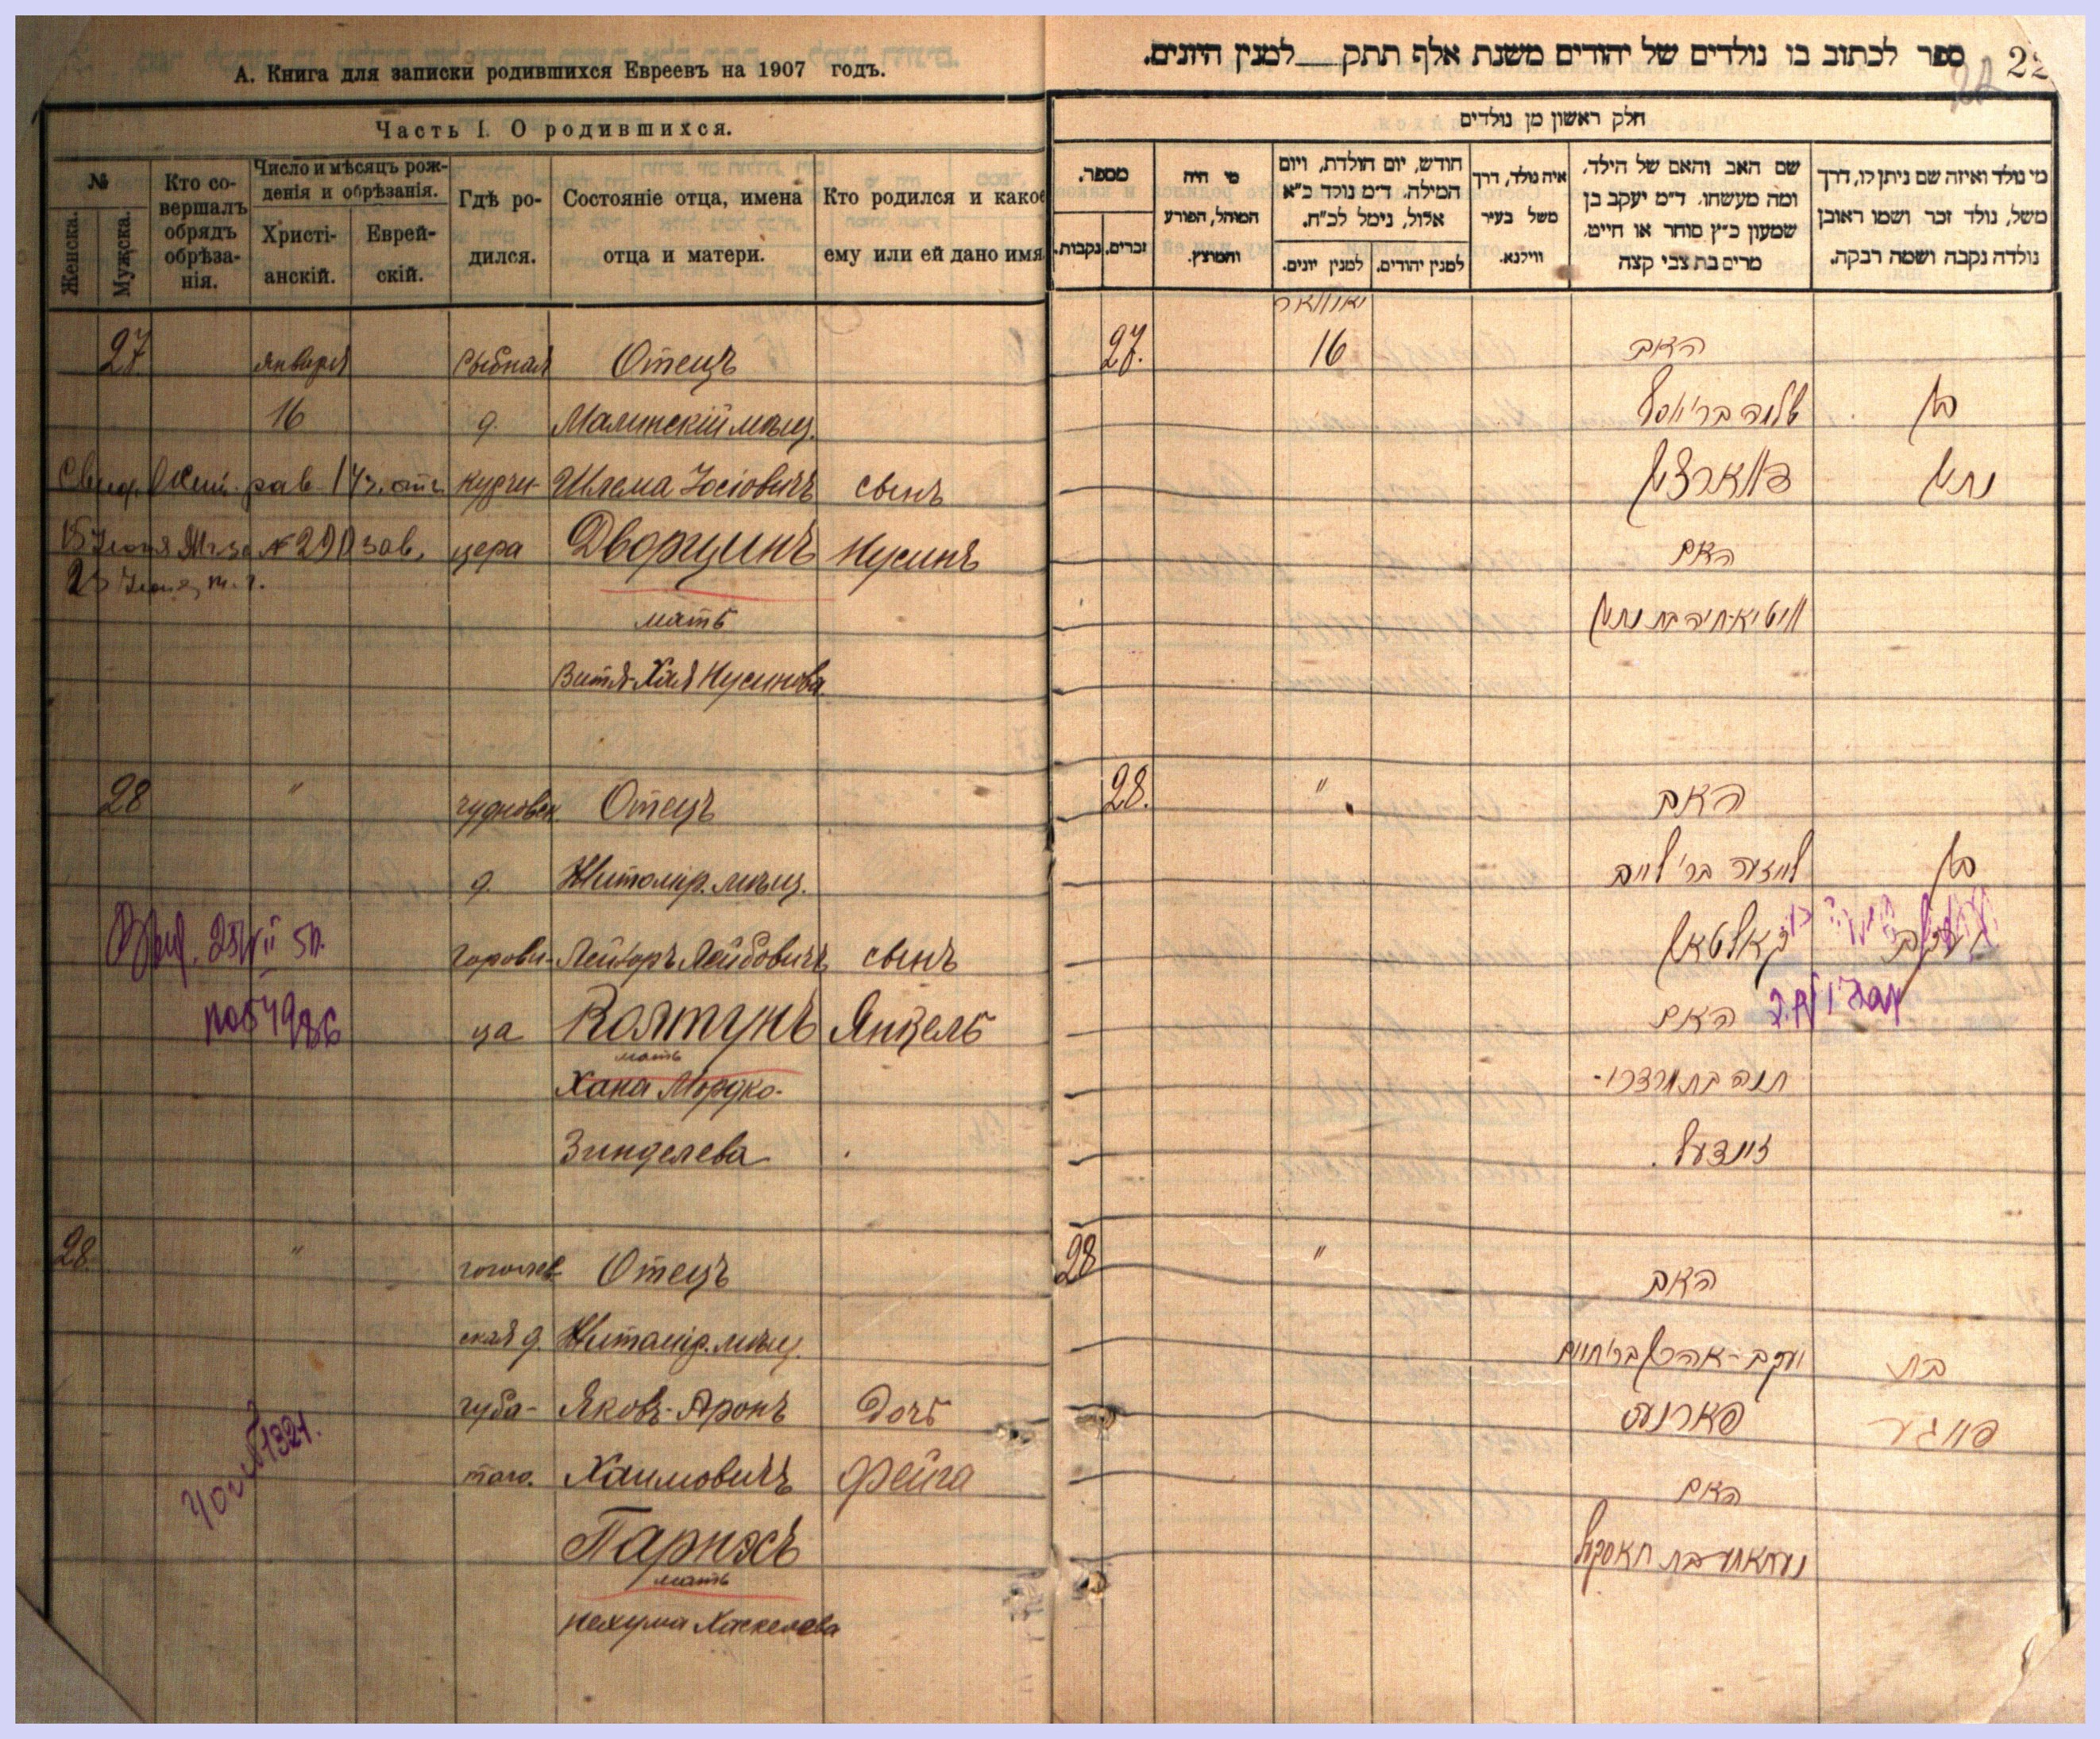 А. Книга для записки родившихся Евреевъ на 1907 годъ.
Часть I. О родившихся.
№
Женска.
Мужска.
Кто совершалъ обрядъ обрѣзанія.
Число и мѣсяцъ рожденія и обрѣзанія.
Христіанскій.
Еврейскій.
Гдѣ родился.
Состояніе отца, имена отца и матери.
Кто родился и какое ему или ей дано имя
27 января Рыбная Отецъ
16 д. Малинскій мѣщ.
курчи- Шлема Іосіовичъ сынъ
15 Іюня № 290 зав. цера Дворцинъ Нусинъ
мать
Витя-Хая Нусинова
28 " чудновск Отецъ
д. Житомір. мѣщ.
горови- Лейзоръ Лейбовичъ сынъ
ца Колтунъ Янкель
мать
Хана Мордко-
Зинделева
28 " гоголев- Отецъ
ская д. Житомір. мѣщ.
губа- Яковъ-Аронъ дочь
того. Хаимовичъ Фейга
Парнэсъ
мать
Нехума Хаскелева
ספר לכתוב בו נולדים של יהודים משנת אלף תתק למנין היונים.
22
חלק ראשון מן נולדים
מספר.
זכרים.
נקבות.
מי היה המוהל, הפורע והמוצץ.
חודש, יום הולדת, ויום המילה. ד״מ נולד כ״א אלול, נימל לכ״ח.
למנין יונים.
למנין יהודים.
איה נולד, דרך משל בעיר ווילנא.
שם האב והאם של הילד. ומה מעשהו. ד״מ יעקב בן שמעון כ״ץ סוחר או חייט. מרים בת צבי קצה
מי נולד ואיזה שם ניתן לו, דרך משל, נולד זכר ושמו ראובן נולדה נקבה ושמה רבקה.
יאנוואר
27. 16 האב
שלמה בר׳ יוסף בן
דווארצין נתן
האם
וויטיא-חיה בת נתן
28. " האב
לייזער בר׳ לייב בן
קאלטאן יעקב
האם
חנה בת מרדכי-
זינדעל.
28 " האב
יעקב-אהרן בר׳ חיים בת
פארנעס פייגע
האם
נעחאמע בת חאסקל